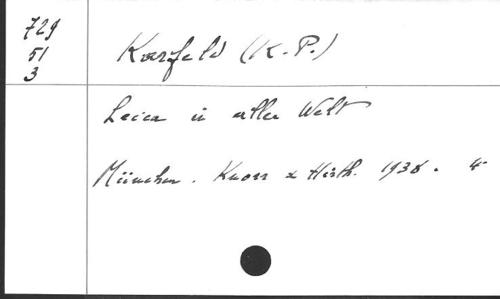 729
51
3
Karfeld (K.P.)
Leica in aller Welt
München. Knorr & Hirth. 1938. 4°